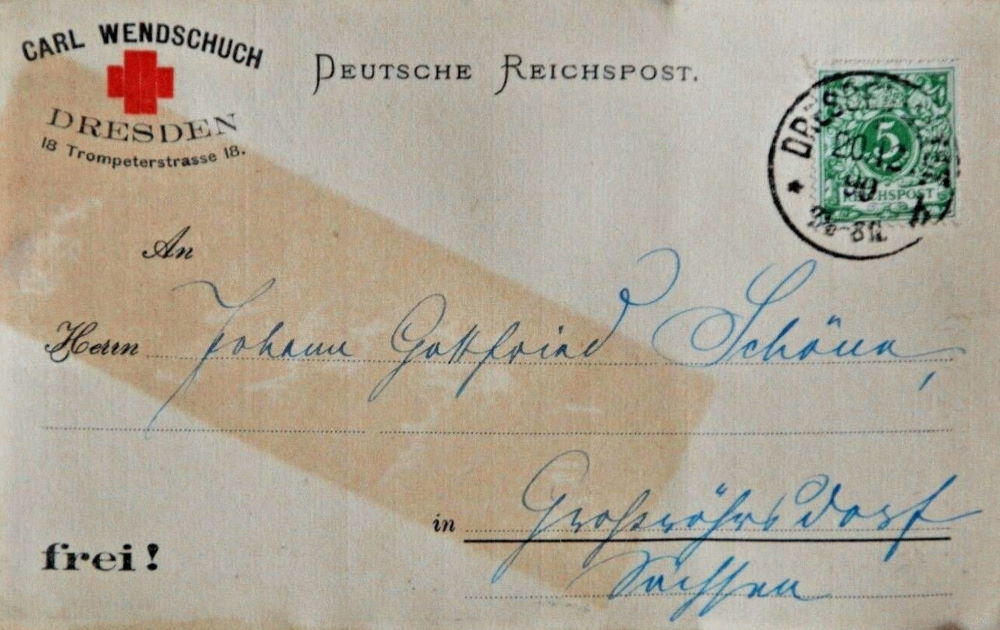 CARL WENDSCHUCH
DRESDEN
18 Trompeterstrasse 18.
DEUTSCHE REICHSPOST.
5
REICHSPOST
DRESDEN
20.12.
90
An
Herrn Johann Gottfried Schöne,
in Großröhrsdorf
Sachsen
frei!